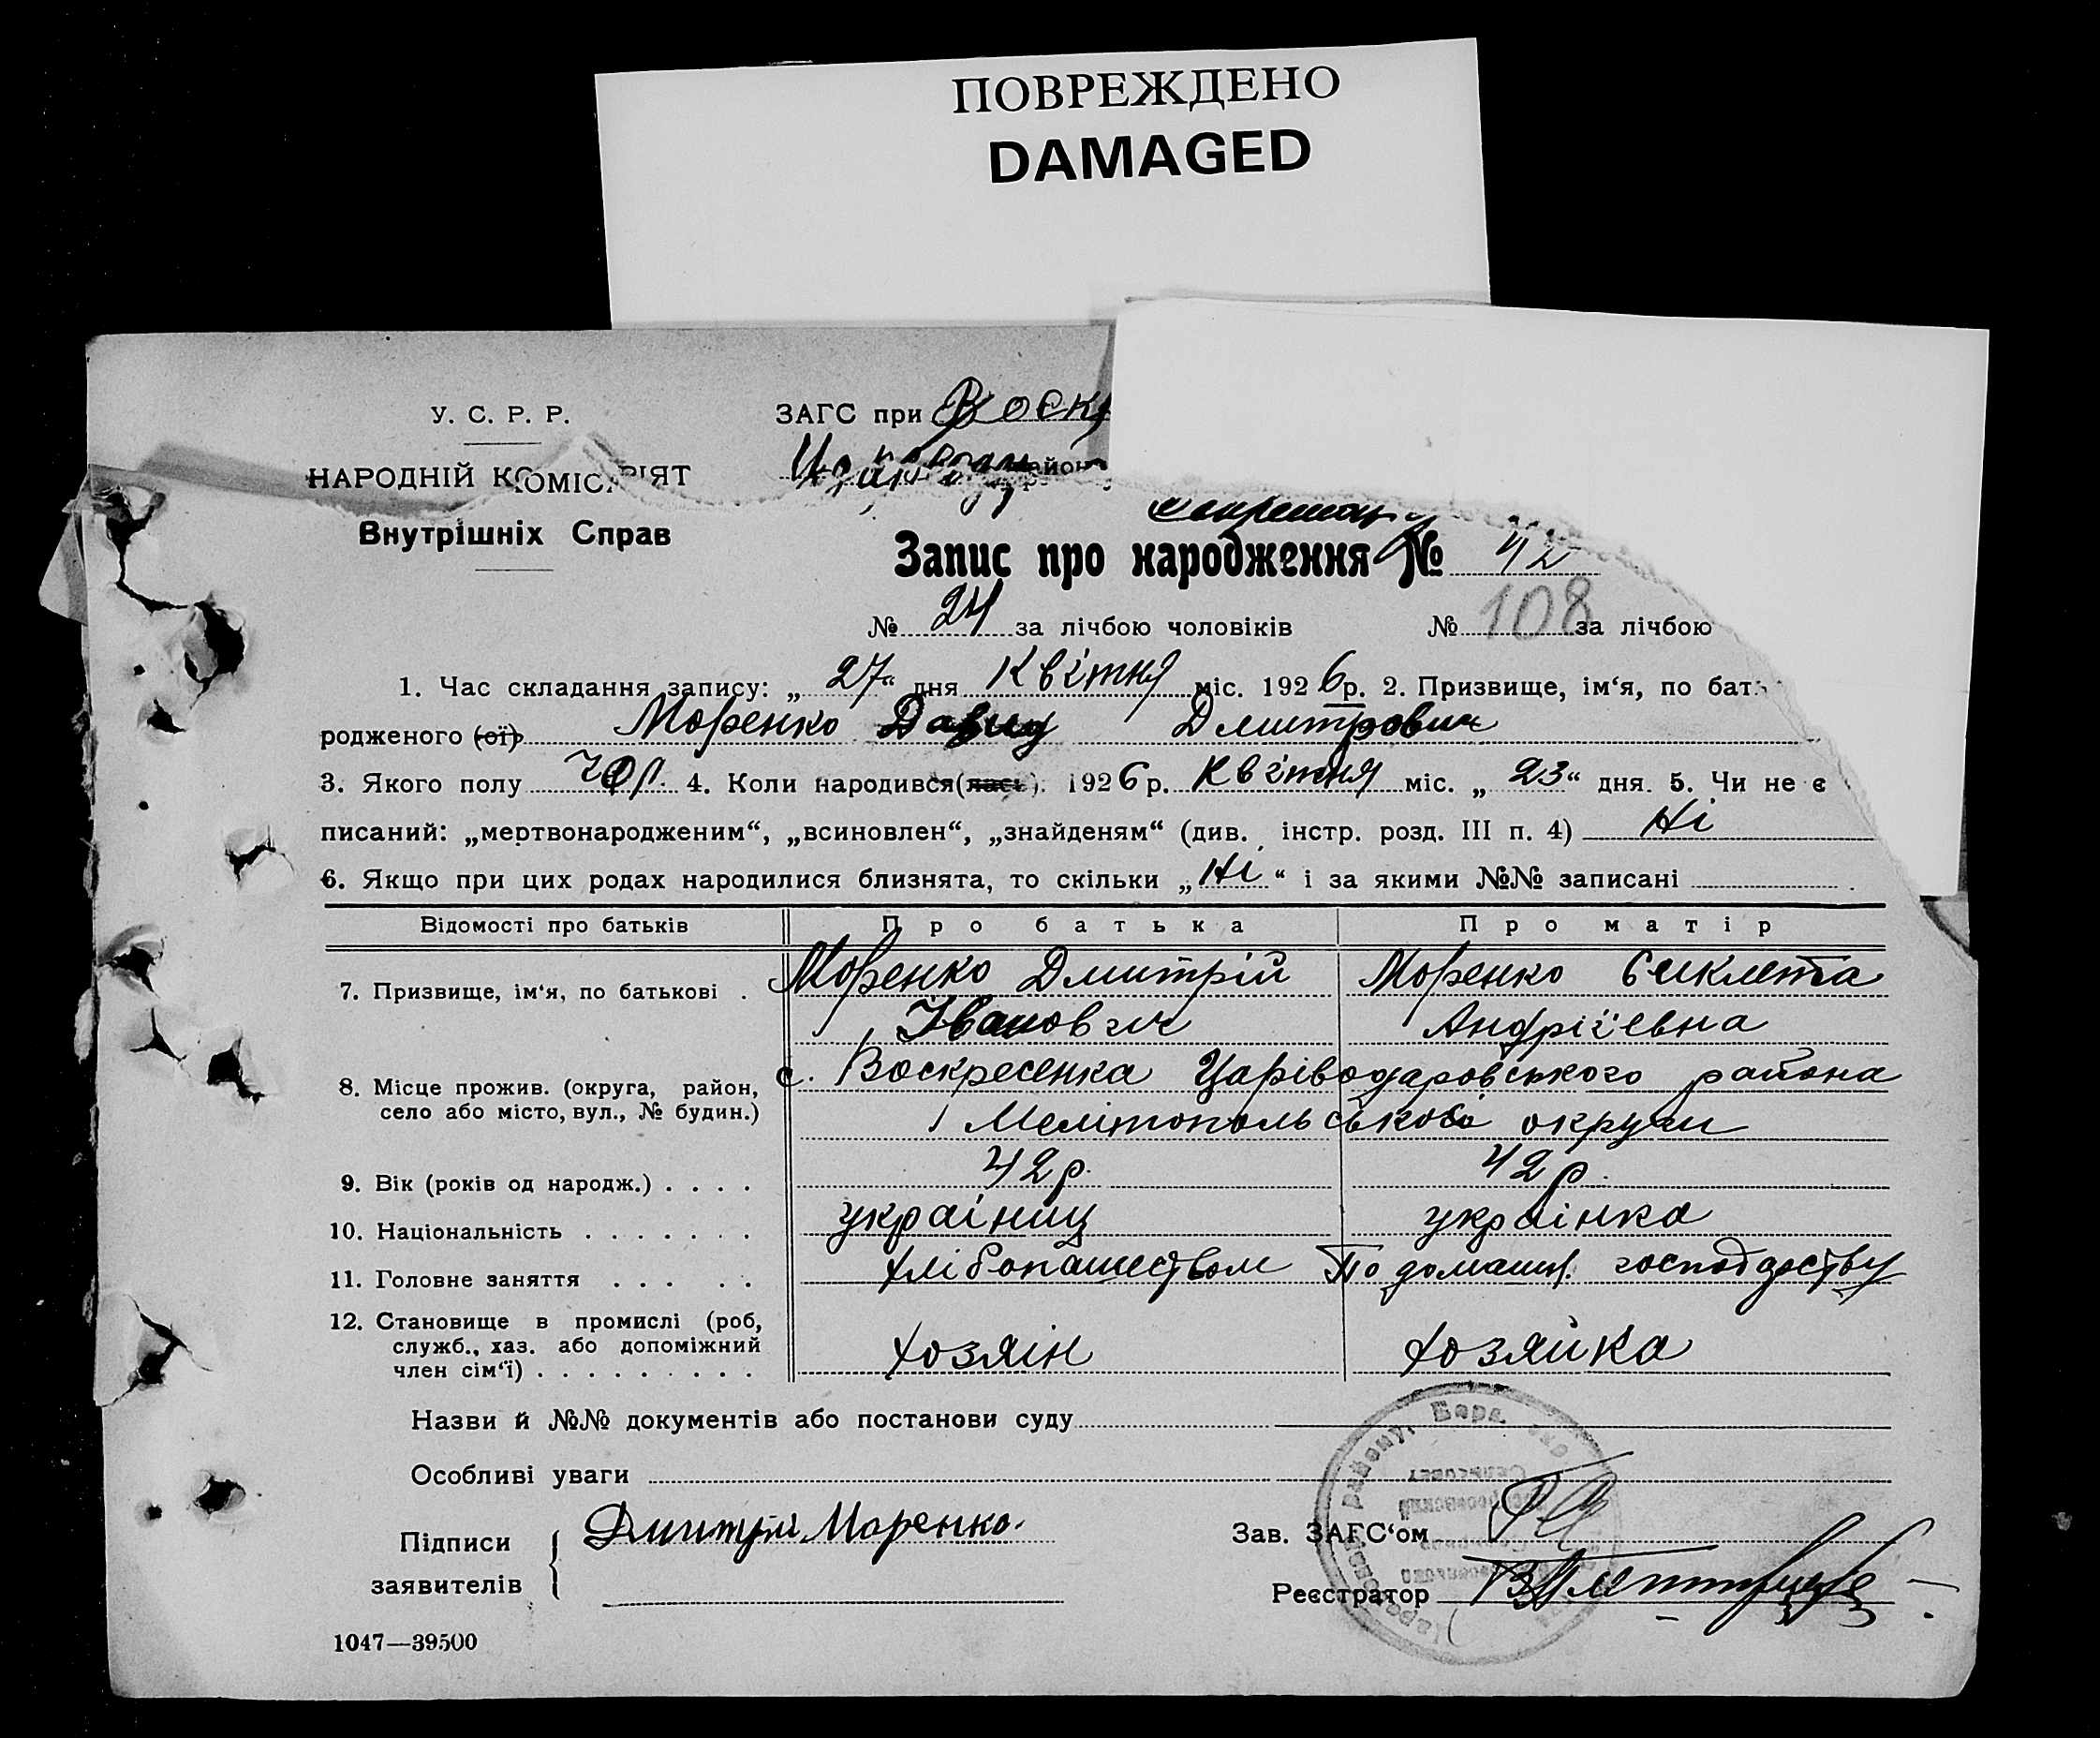 ПОВРЕЖДЕНО
DAMAGED
У. С. Р. Р.
ЗАГС при Воск
НАРОДНІЙ КОМІС РІЯТ
Внутрішніх Справ
Запис про народження № 42
№ 24 за лічбою чоловіків № 108 за лічбою
1. Час складання запису: „ 27 “ дня Квітня міс. 1926 р. 2. Призвище, ім‘я, по бат
родженого (ої) Моренко Давид Дмитрович
3. Якого полу чол. 4. Коли народився(лась): 1926 р. Квітня міс. „ 23 “ дня. 5. Чи не є
писаний: „мертвонародженим“, „всиновлен“, „знайденям“ (див. інстр. розд. III п. 4) Ні
6. Якщо при цих родах народилися близнята, то скільки „ Ні “ і за якими №№ записані
Відомості про батьків Про батька Про матір
7. Призвище, ім‘я, по батькові . Моренко Дмитрій Моренко Єиклета
Іванович Андріївна
8. Місце прожив. (округа, район, с. Воскресенка Царіводаровського района
село або місто, вул., № будин.) Мелітопольської округи
9. Вік (років од народж.) . . . . 42 р. 42 р.
10. Національність . . . . . . . україниц українка
11. Головне заняття . . . . . хлібопашеством По домашн. господарству
12. Становище в промислі (роб,
служб., хаз. або допоміжний хозяін хозяйка
член сім‘ї) . . . . . . . . .
Назви й №№ документів або постанови суду
Особливі уваги
Підписи Дмитрій Моренко.
заявителів
Зав. ЗАГС‘ом
Реєстратор
1047—39500